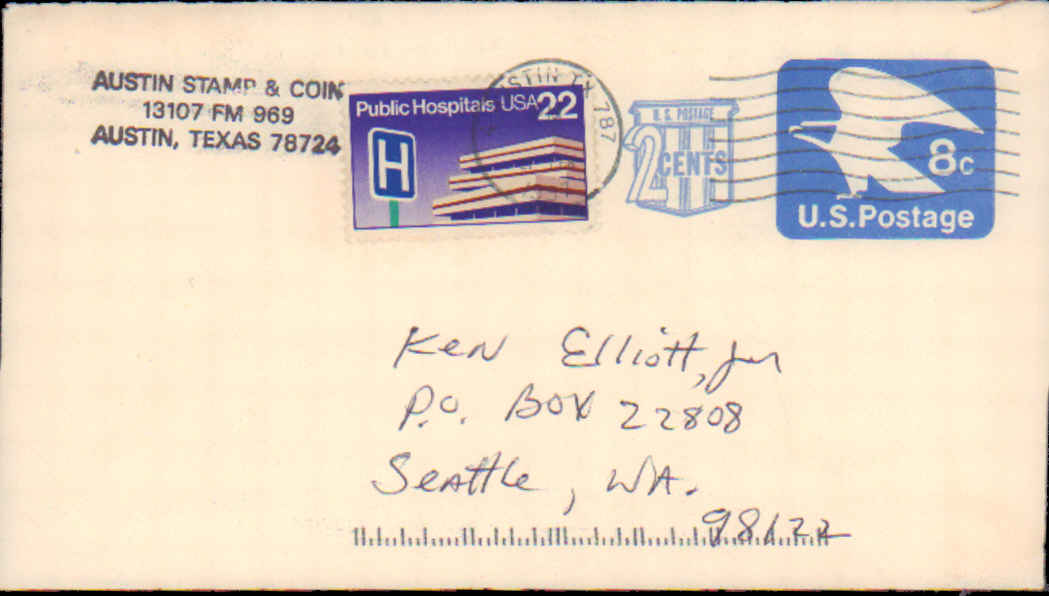 AUSTIN STAMP & COIN
13107 FM 969
AUSTIN, TEXAS 78724
Public Hospitals USA 22
H
AUSTIN TX 787
U.S. POSTAGE
2 CENTS
8c
U.S. Postage
Ken Elliott, Jr
P.O. Box 22808
Seattle, WA.
98122